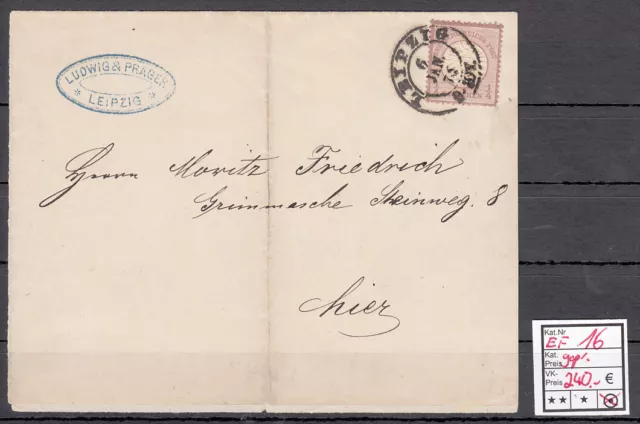 LUDWIG & PRAGER
LEIPZIG
LEIPZIG
6
JAN
73
1/4
Herrn Moritz Friedrich
Grimmasche Steinweg. 8
hier
Kat.Nr
EF 16
Kat.
Preis gepr.
VK-
Preis 240.- €
★★ ★